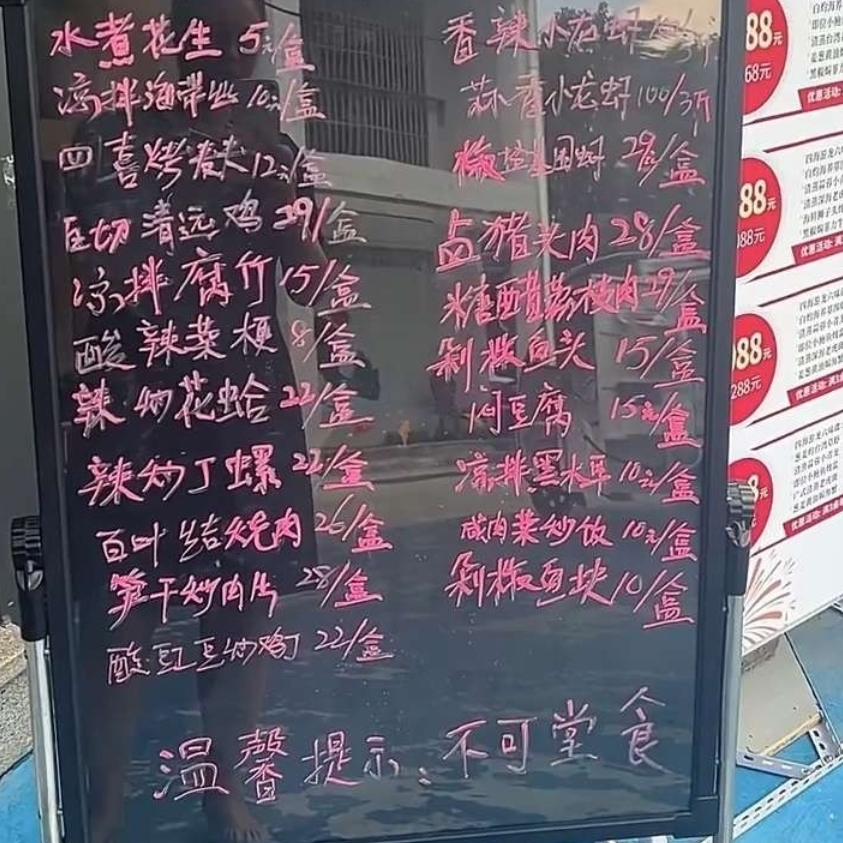 水煮花生 5元/盒
凉拌海带丝 10元/盒
四喜烤麸 12元/盒
白切清远鸡 29/盒
凉拌腐竹 15/盒
酸辣菜梗 8/盒
辣炒花蛤 22/盒
辣炒丁螺 22/盒
百叶结烧肉 26/盒
笋干炒肉片 28/盒
酸豇豆炒鸡丁 22/盒
香辣小龙虾 /3斤
蒜香小龙虾 100/3斤
椒盐基围虾 29/盒
卤猪头肉 28/盒
糖醋荔枝肉 29/盒
剁椒鱼头 15/盒
焖豆腐 15元/盒
凉拌黑木耳 10元/盒
咸肉菜炒饭 10元/盒
剁椒鱼块 10/盒
温馨提示:不可堂食
88元
68元
优惠活动:
88元
088元
优惠活动: 满
88元
288元
优惠活动: 满3
优惠活动: 满3